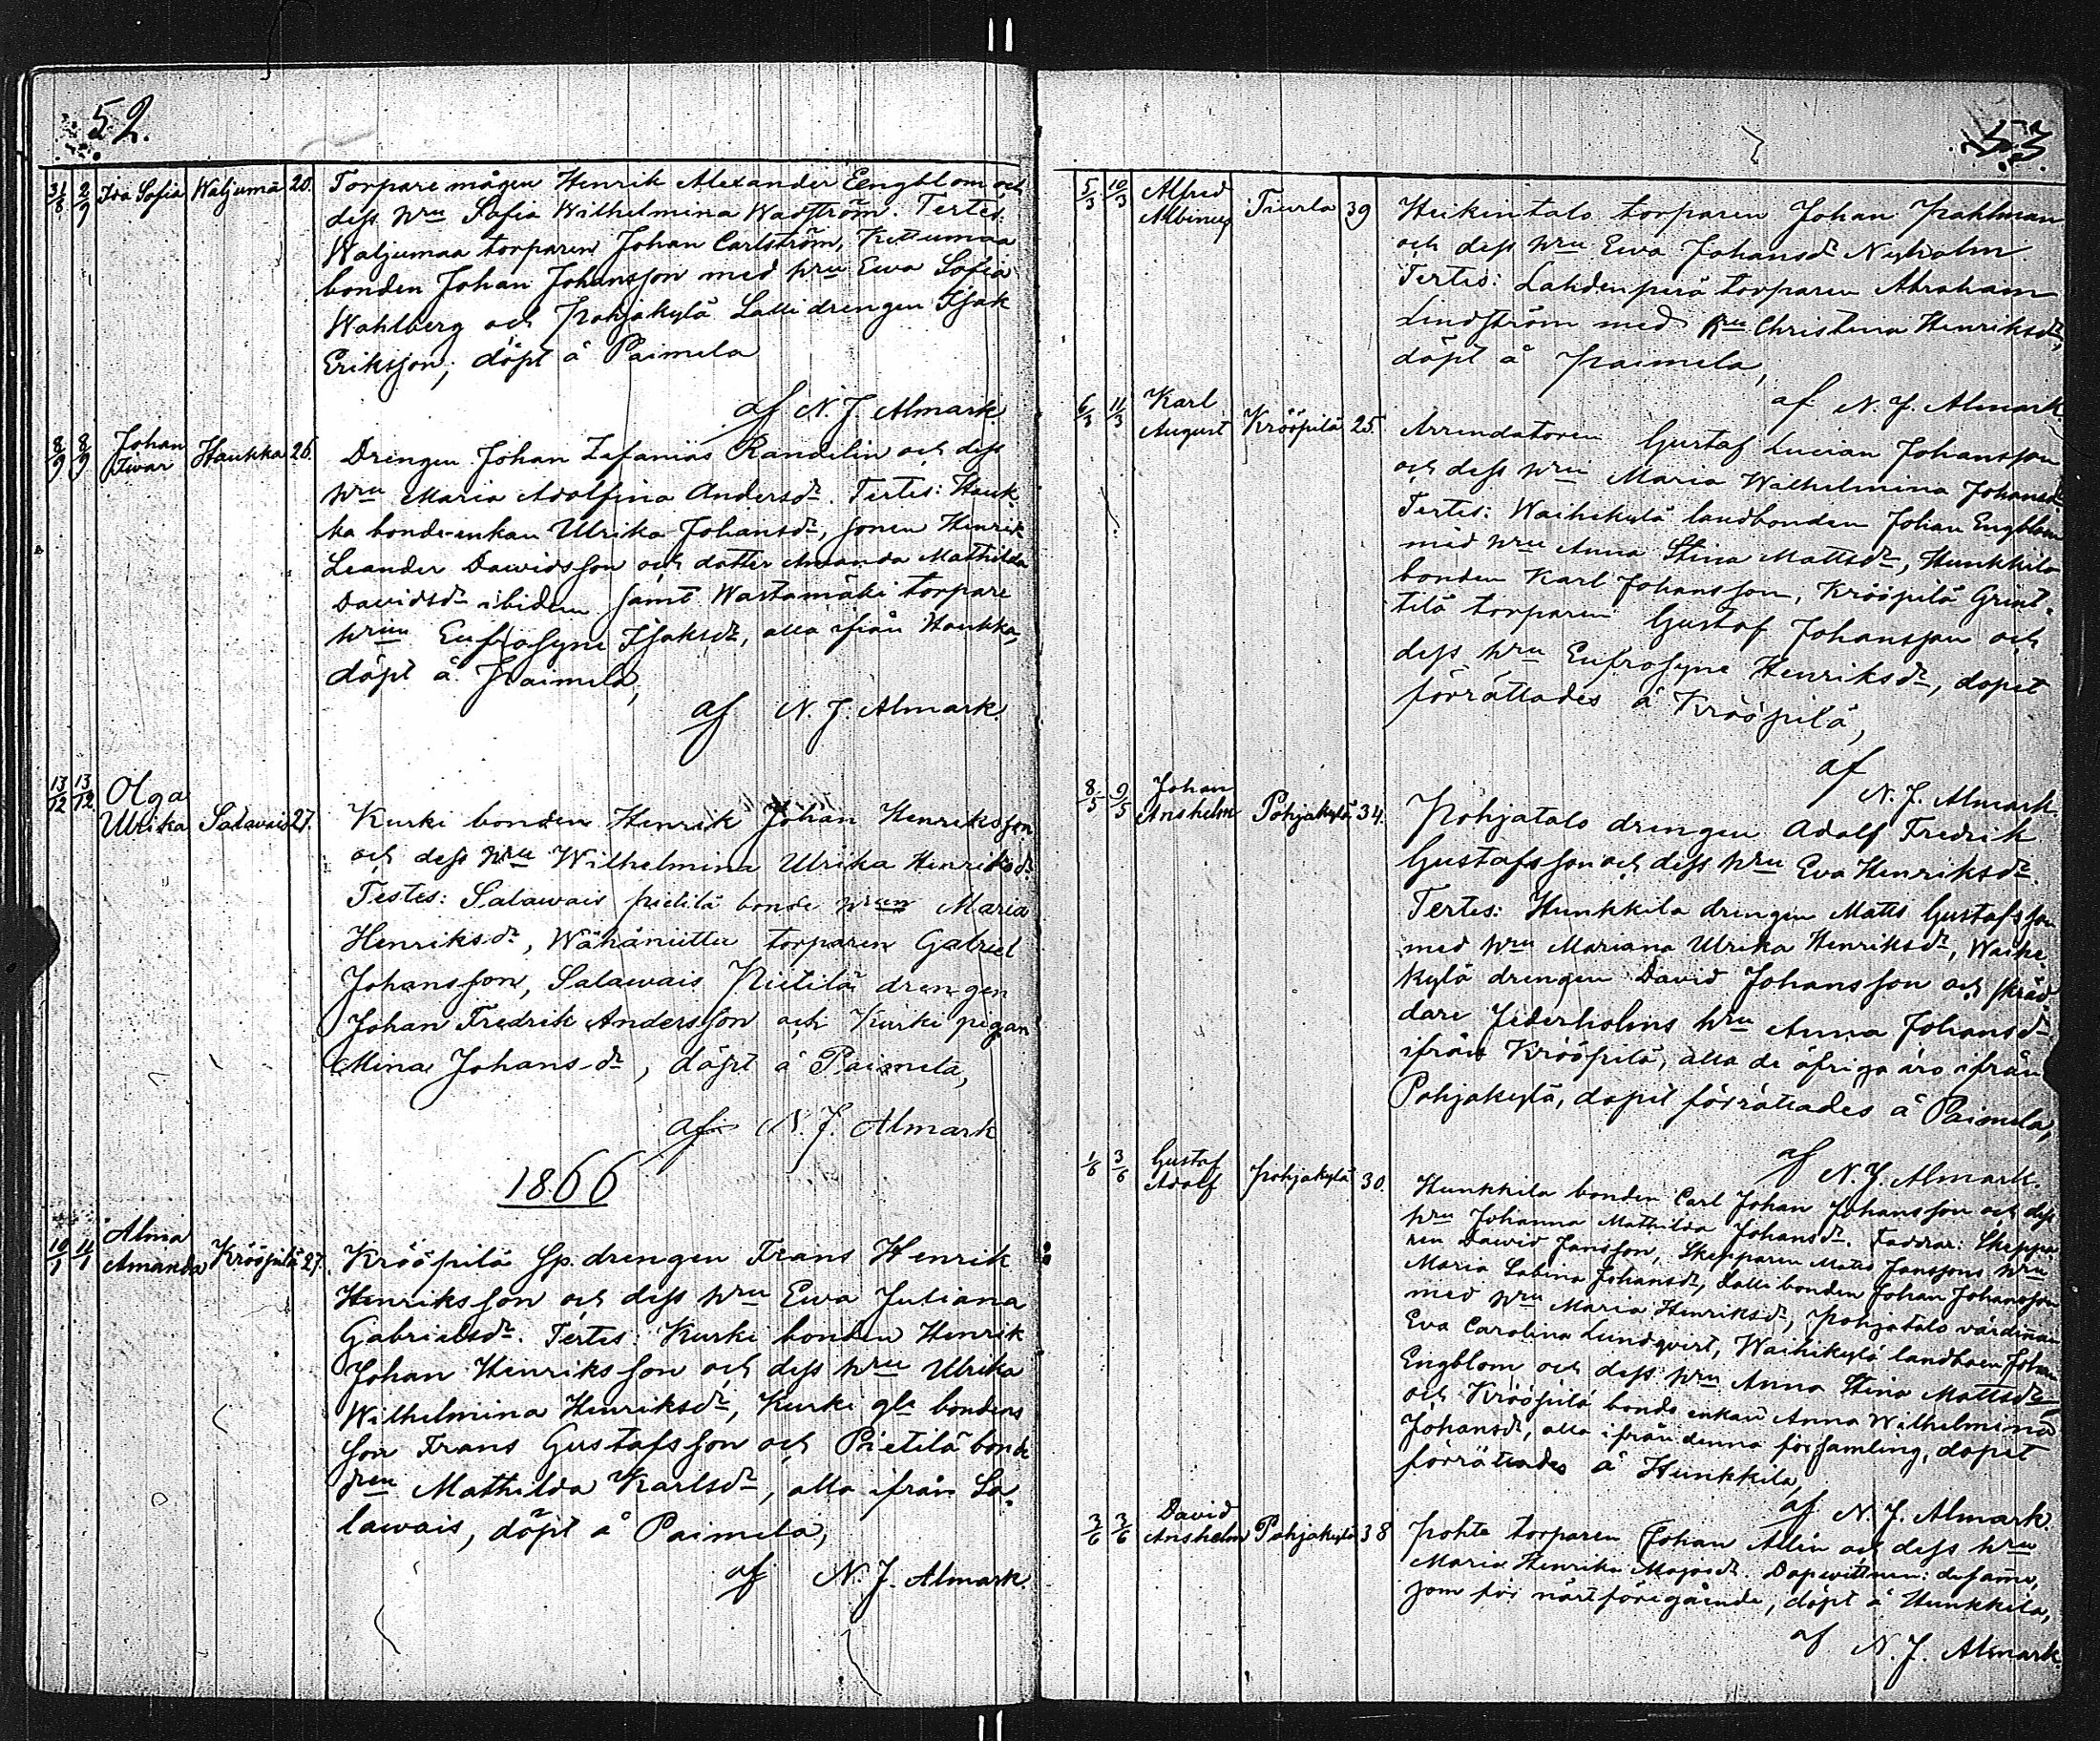 52.
31/8 2/9 Ida Sofia Waljumä 20. Torpare mågen Henrik Alexander Engblom och
dess hru Sofia Wilhelmina Wadström. Testes.
Waljumaa torparen Johan Carlström, Kettumaa
bonden Johan Johansson med hru Ewa Sofia
Wahlberg och Pohjakylä Lalli drengen Isak
Eriksson, döpt å Paimela
af N. J. Almark.
8/9 8/9 Johan Iivar Haukka 26. Drengen Johan Zefanias Randelin och dess
hru Maria Adolfina Andersdr. Testes: Hauk-
ka bonde-enkan Ulrika Johansdr, sonen Henrik
Leander Dawidsson och dotter Amanda Mathilda
Davidsdr ibidem samt Wastamäki torpare
hrun Eufrosyne Isaksdr, alla ifrån Haukka,
döpt å Paimela,
af N. J. Almark.
13/12 13/12 Olga
Ulrika Salavais 27. Kurki bonden Henrik Johan Henriksson
och dess hru Wilhelmina Ulrika Henriksdr.
Testes: Salawais pietilä bonde hrun Maria
Henriksdr, Wähäniittu torparen Gabriel
Johansson, Salawais Pietilä drengen
Johan Fredrik Andersson och Kurki pigan
Mina Johans-dr, döpt å Paimela,
af N. J. Almark
1866
10/1 11/1 Alma
Amanda Krööpilä 27. Krööpilä Sp. drengen Frans Henrik
Henriksson och dess hru Ewa Juliana
Gabrielsdr. Testes: Kurki bonden Henrik
Johan Henriksson och dess hru Ulrika
Wilhelmina Henriksdr, Kurki gla bondens
son Frans Gustafsson och Pietilä bonde
hrun Mathilda Karlsdr, alla ifrån Sa-
lawais, döpt å Paimela,
af N. J. Almark.
53
5/3 10/3 Alfred
Albinus Tiurla 39 Heikintalo torparen Johan Pahlman
och dess hru Ewa Johansdr Nyholm.
Testes: Lahdenperä torparen Abraham
Lindström med hru Christina Henriksdr,
döpt å Paimela,
af N. J. Almark.
6/3 11/3 Karl
August Krööpilä 25. Arrendatoren Gustaf Lucian Johansson
och dess hru Maria Wilhelmina Johansdr.
Testes: Waihekylä landbonden Johan Engblom
med hru Anna Stina Mattsdr, Hunkkila
bonden Karl Johansson, Krööpilä Grint-
tilä torparen Gustaf Johansson och
dess hru Eufrosyne Henriksdr, dopet
förrättades å Krööpilä,
af
N. J. Almark.
8/5 9/5 Johan
Anshelm Pohjakylä 34. Pohjatalo drengen Adolf Fredrik
Gustafsson och dess hru Eva Henriksdr.
Testes: Hunkkila drengen Matts Gustafsson
med hru Mariana Ulrika Henriksdr, Waihe
kylä drengen David Johansson och skräd
dare Jederholms hru Anna Johansdr
ifrån Krööpilä, alla de öfriga äro ifrån
Pohjakylä, dopet förrättades å Paimela,
af N. J. Almark.
1/6 3/6 Gustaf
Adolf Pohjakylä 30. Hunkkila bonden Carl Johan Johansson och dess
hru Johanna Mathilda Johansdr. Faddrar: Skeppa
ren Dawid Jansson, Skepparen Matts Janssons hru
Maria Sabina Johansdr, Lalli bonden Johan Johansson
med hru Maria Henriksdr, Pohjatalo värdinnan
Eva Carolina Lundqvist, Waihikylä landboen Johan
Engblom och dess hru Anna Stina Mattsdr
och Krööpilä bonde enkan Anna Wilhelmina
Johansdr, alla ifrån denna församling, dopet
förrättades å Hunkkila,
af N. J. Almark.
3/6 3/6 David
Anshelm Pohjakylä 38 Pohte torparen Johan Allén och dess hru
Maria Henrika Majasdr. Dopvittnen: desamme,
som för näst föregående, döpt å Hunkkila,
af N. J. Almark.